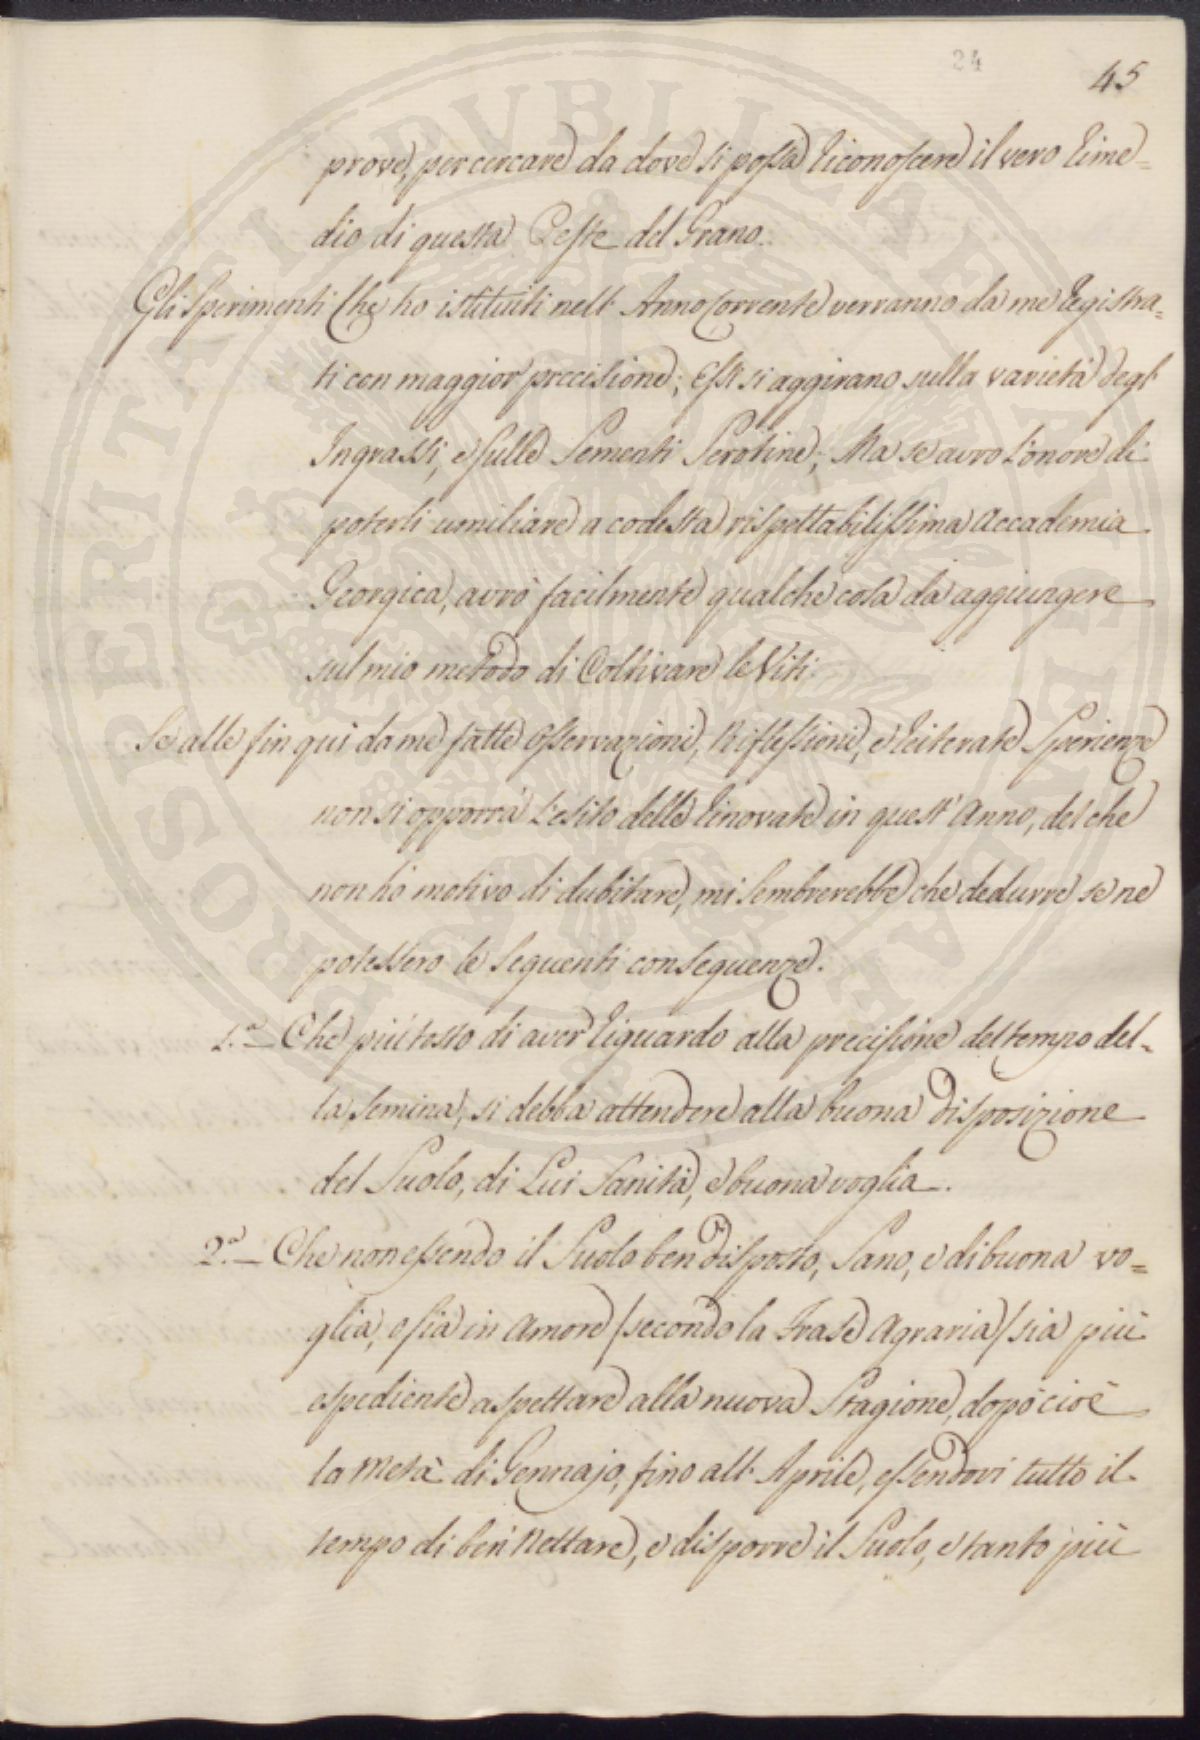 24
45
prove, per cercare da dove si possa riconoscere il vero rime=
dio di questa Peste del Grano.
Gli Sperimenti che ho istituiti nell' Anno Corrente verranno da me registra=
ti con maggior precisione; Essi si aggirano sulla varietà degl'
Ingrassi, e sulle Sementi Serotine; Ma se avrò l'onore di
poterli umiliare a codesta rispettabilissima Accademia
Georgica, avrò facilmente qualche cosa da aggiungere
sul mio metodo di Coltivare le Viti.
Se alle fin qui da me fatte Osservazioni, Riflessioni, e reiterate Sperienze
non si opporrà l'esito delle rinovate in quest' Anno, del che
non hò motivo di dubitare, mi sembrerebbe che dedurre se ne
potessero le seguenti conseguenze.
1.a — Che più tosto di aver riguardo alla precisione del tempo del=
la semina, si debba attendere alla buona disposizione
del Suolo, di Lui Sanità, e buona voglia.
2.a — Che non essendo il Suolo ben disposto, Sano, e di buona vo=
glia, e sia in Amore /secondo la Frase Agraria/ sia più
espediente aspettare alla nuova Stagione, dopo cioè
la metà di Gennajo, fino all' Aprile, essendovi tutto il
tempo di ben Nettare, e disporre il Suolo, e tanto più
PROSPERITATI PVBLICAE AVGENDAE